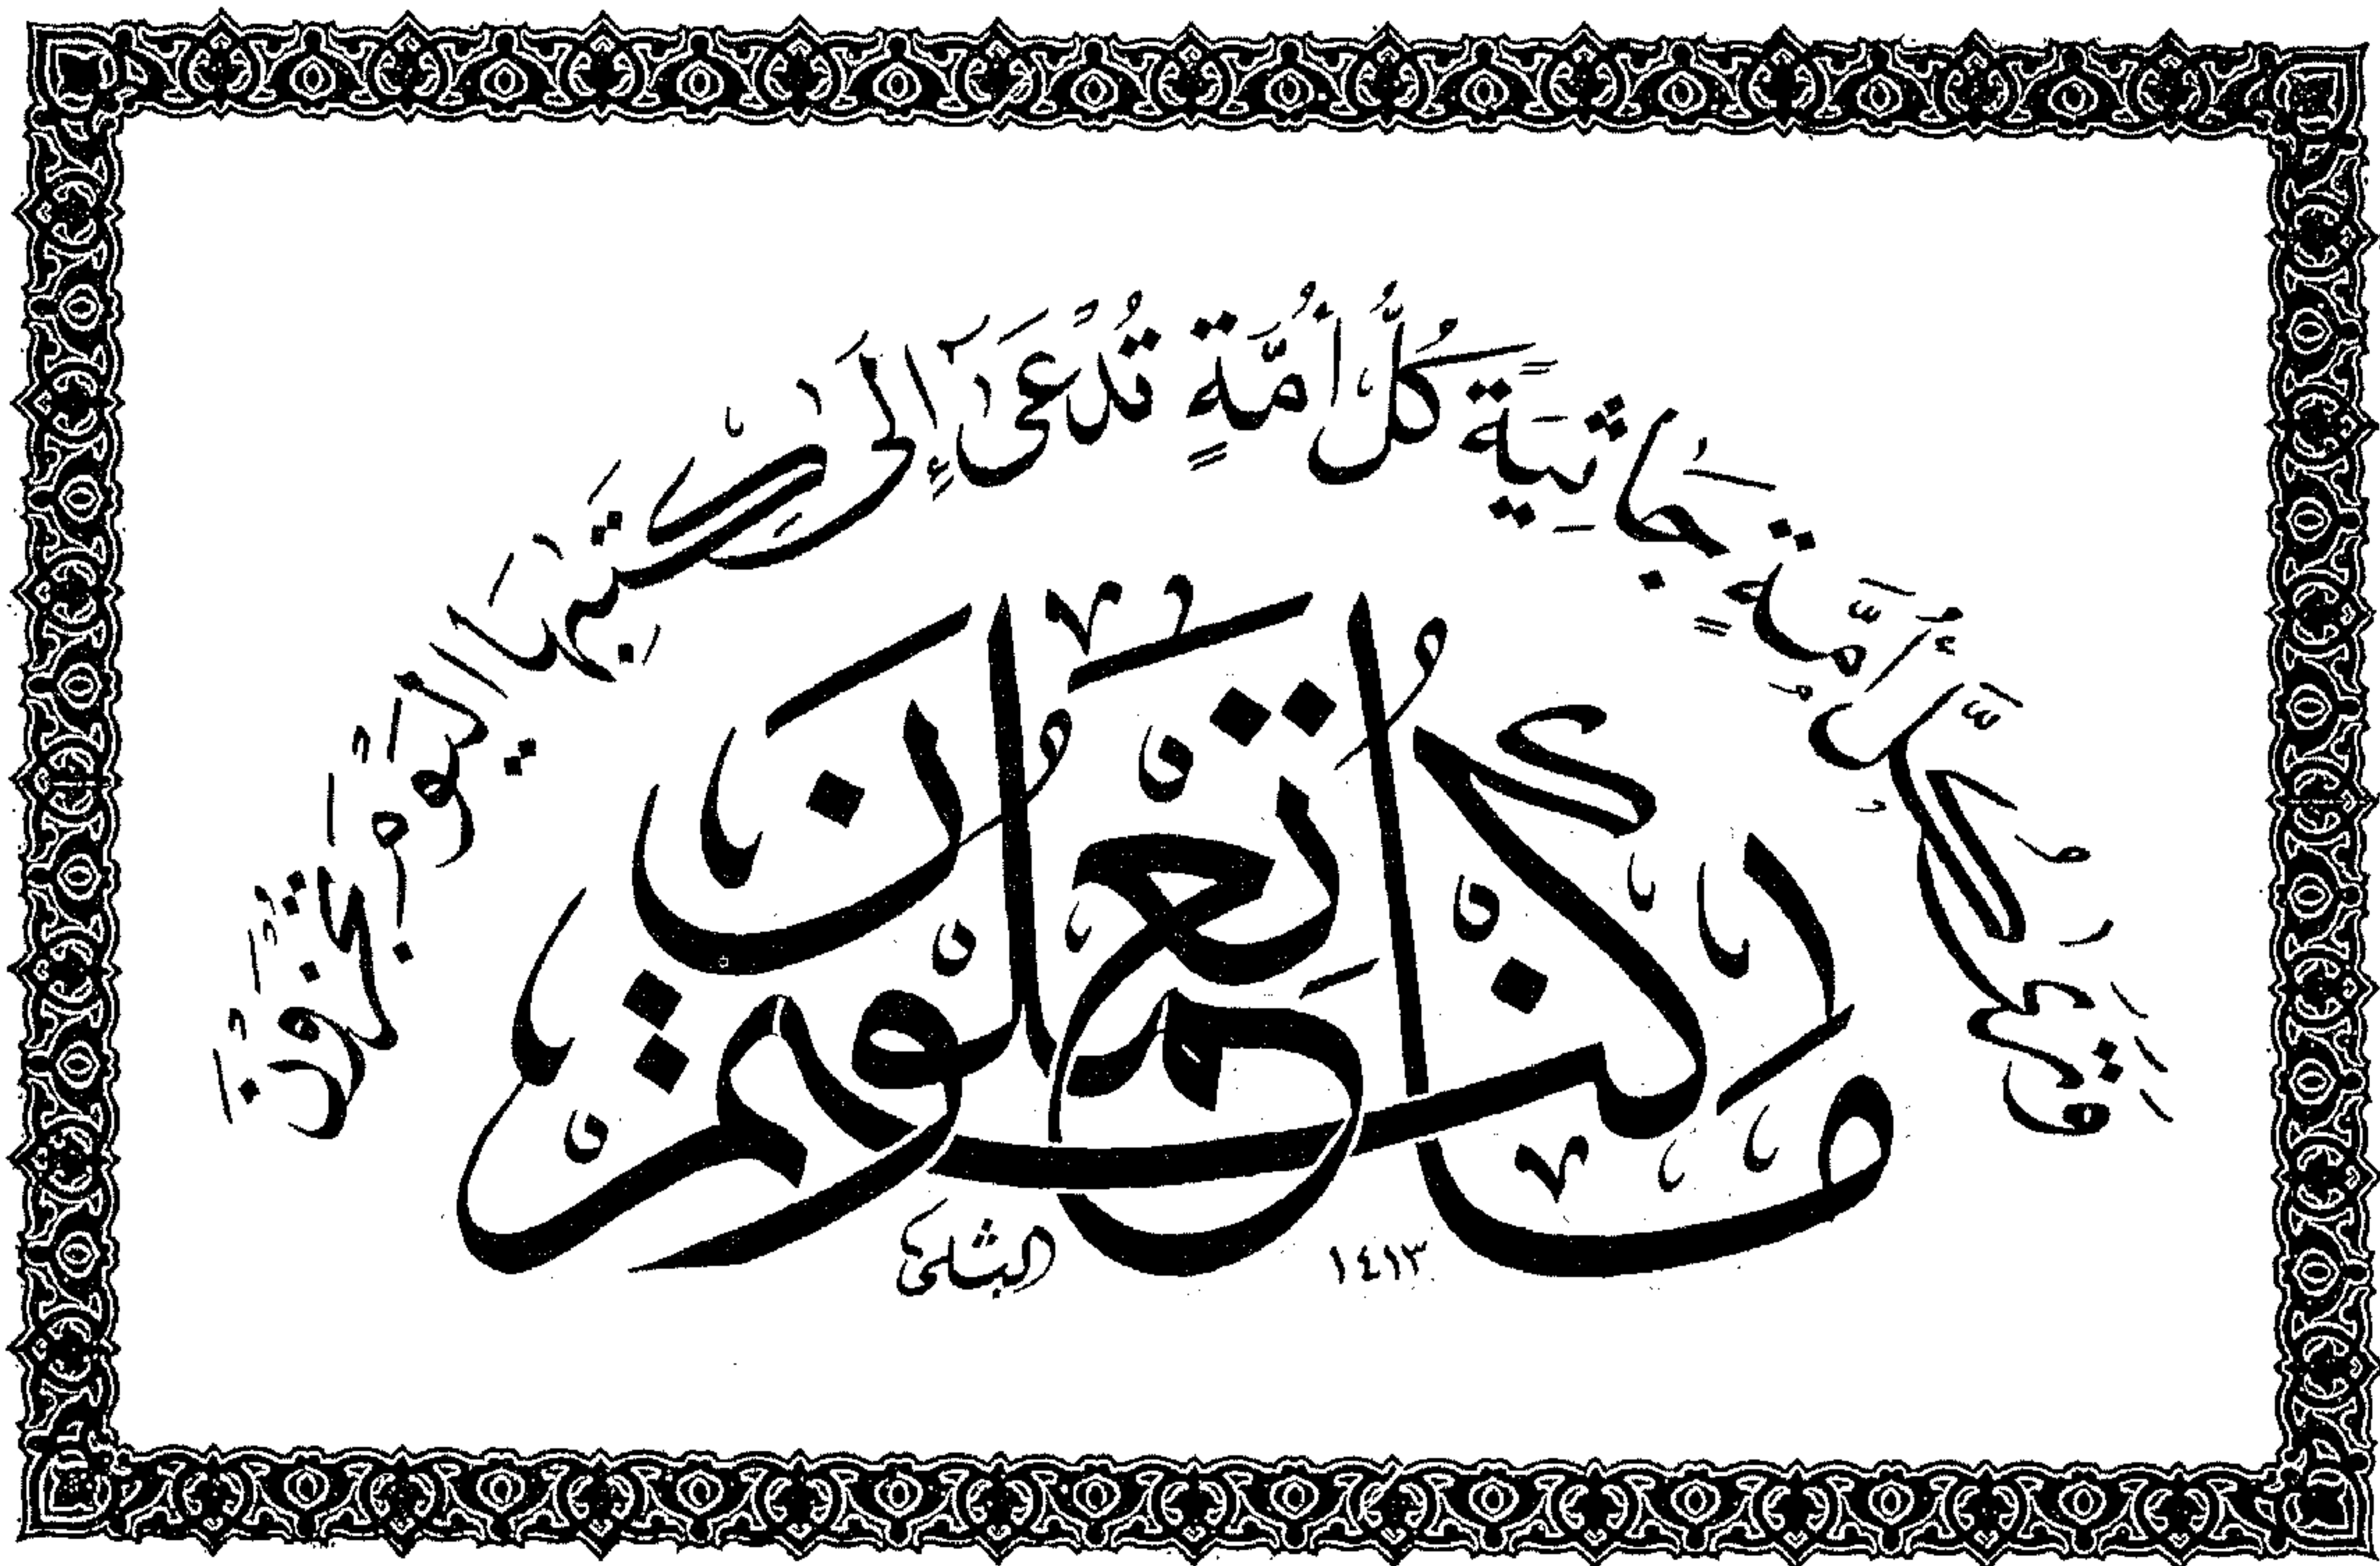 وَتَرَىٰ كُلَّ أُمَّةٍ جَاثِيَةً كُلُّ أُمَّةٍ تُدْعَىٰ إِلَىٰ كِتَٰبِهَا الْيَوْمَ تُجْزَوْنَ
مَا كُنْتُمْ تَعْمَلُونَ
١٤١٣